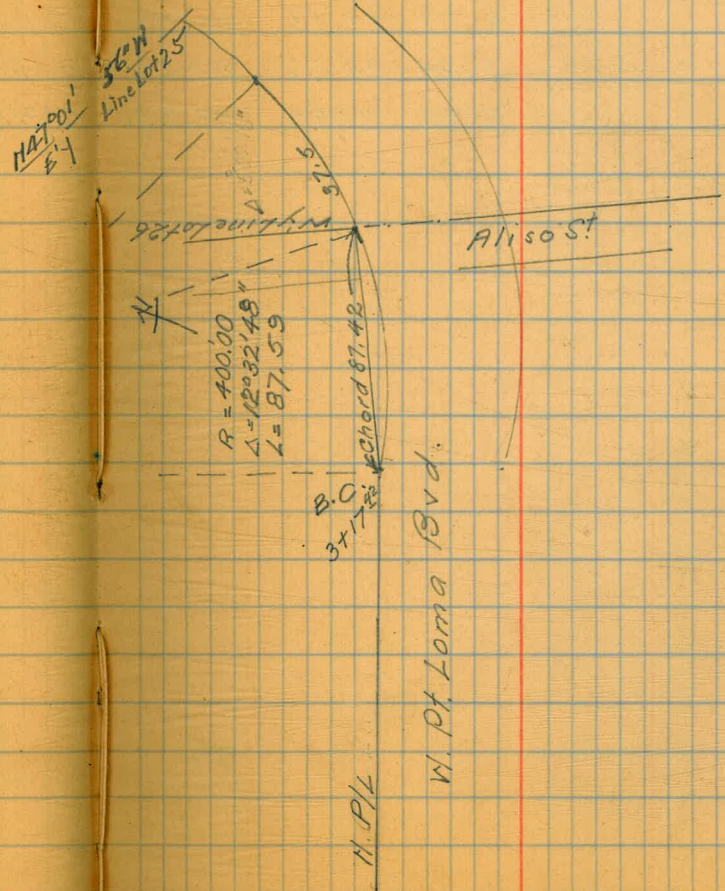 N47°01' 56"W
E'ly Line Lot 25
37.5
W'ly Line Lot 26
Aliso St
N
R = 400.00
Δ = 12°32'48"
L = 87.59
Chord 87.42
B.C.
3+17.42
W. Pt. Loma Bvd.
N. P/L